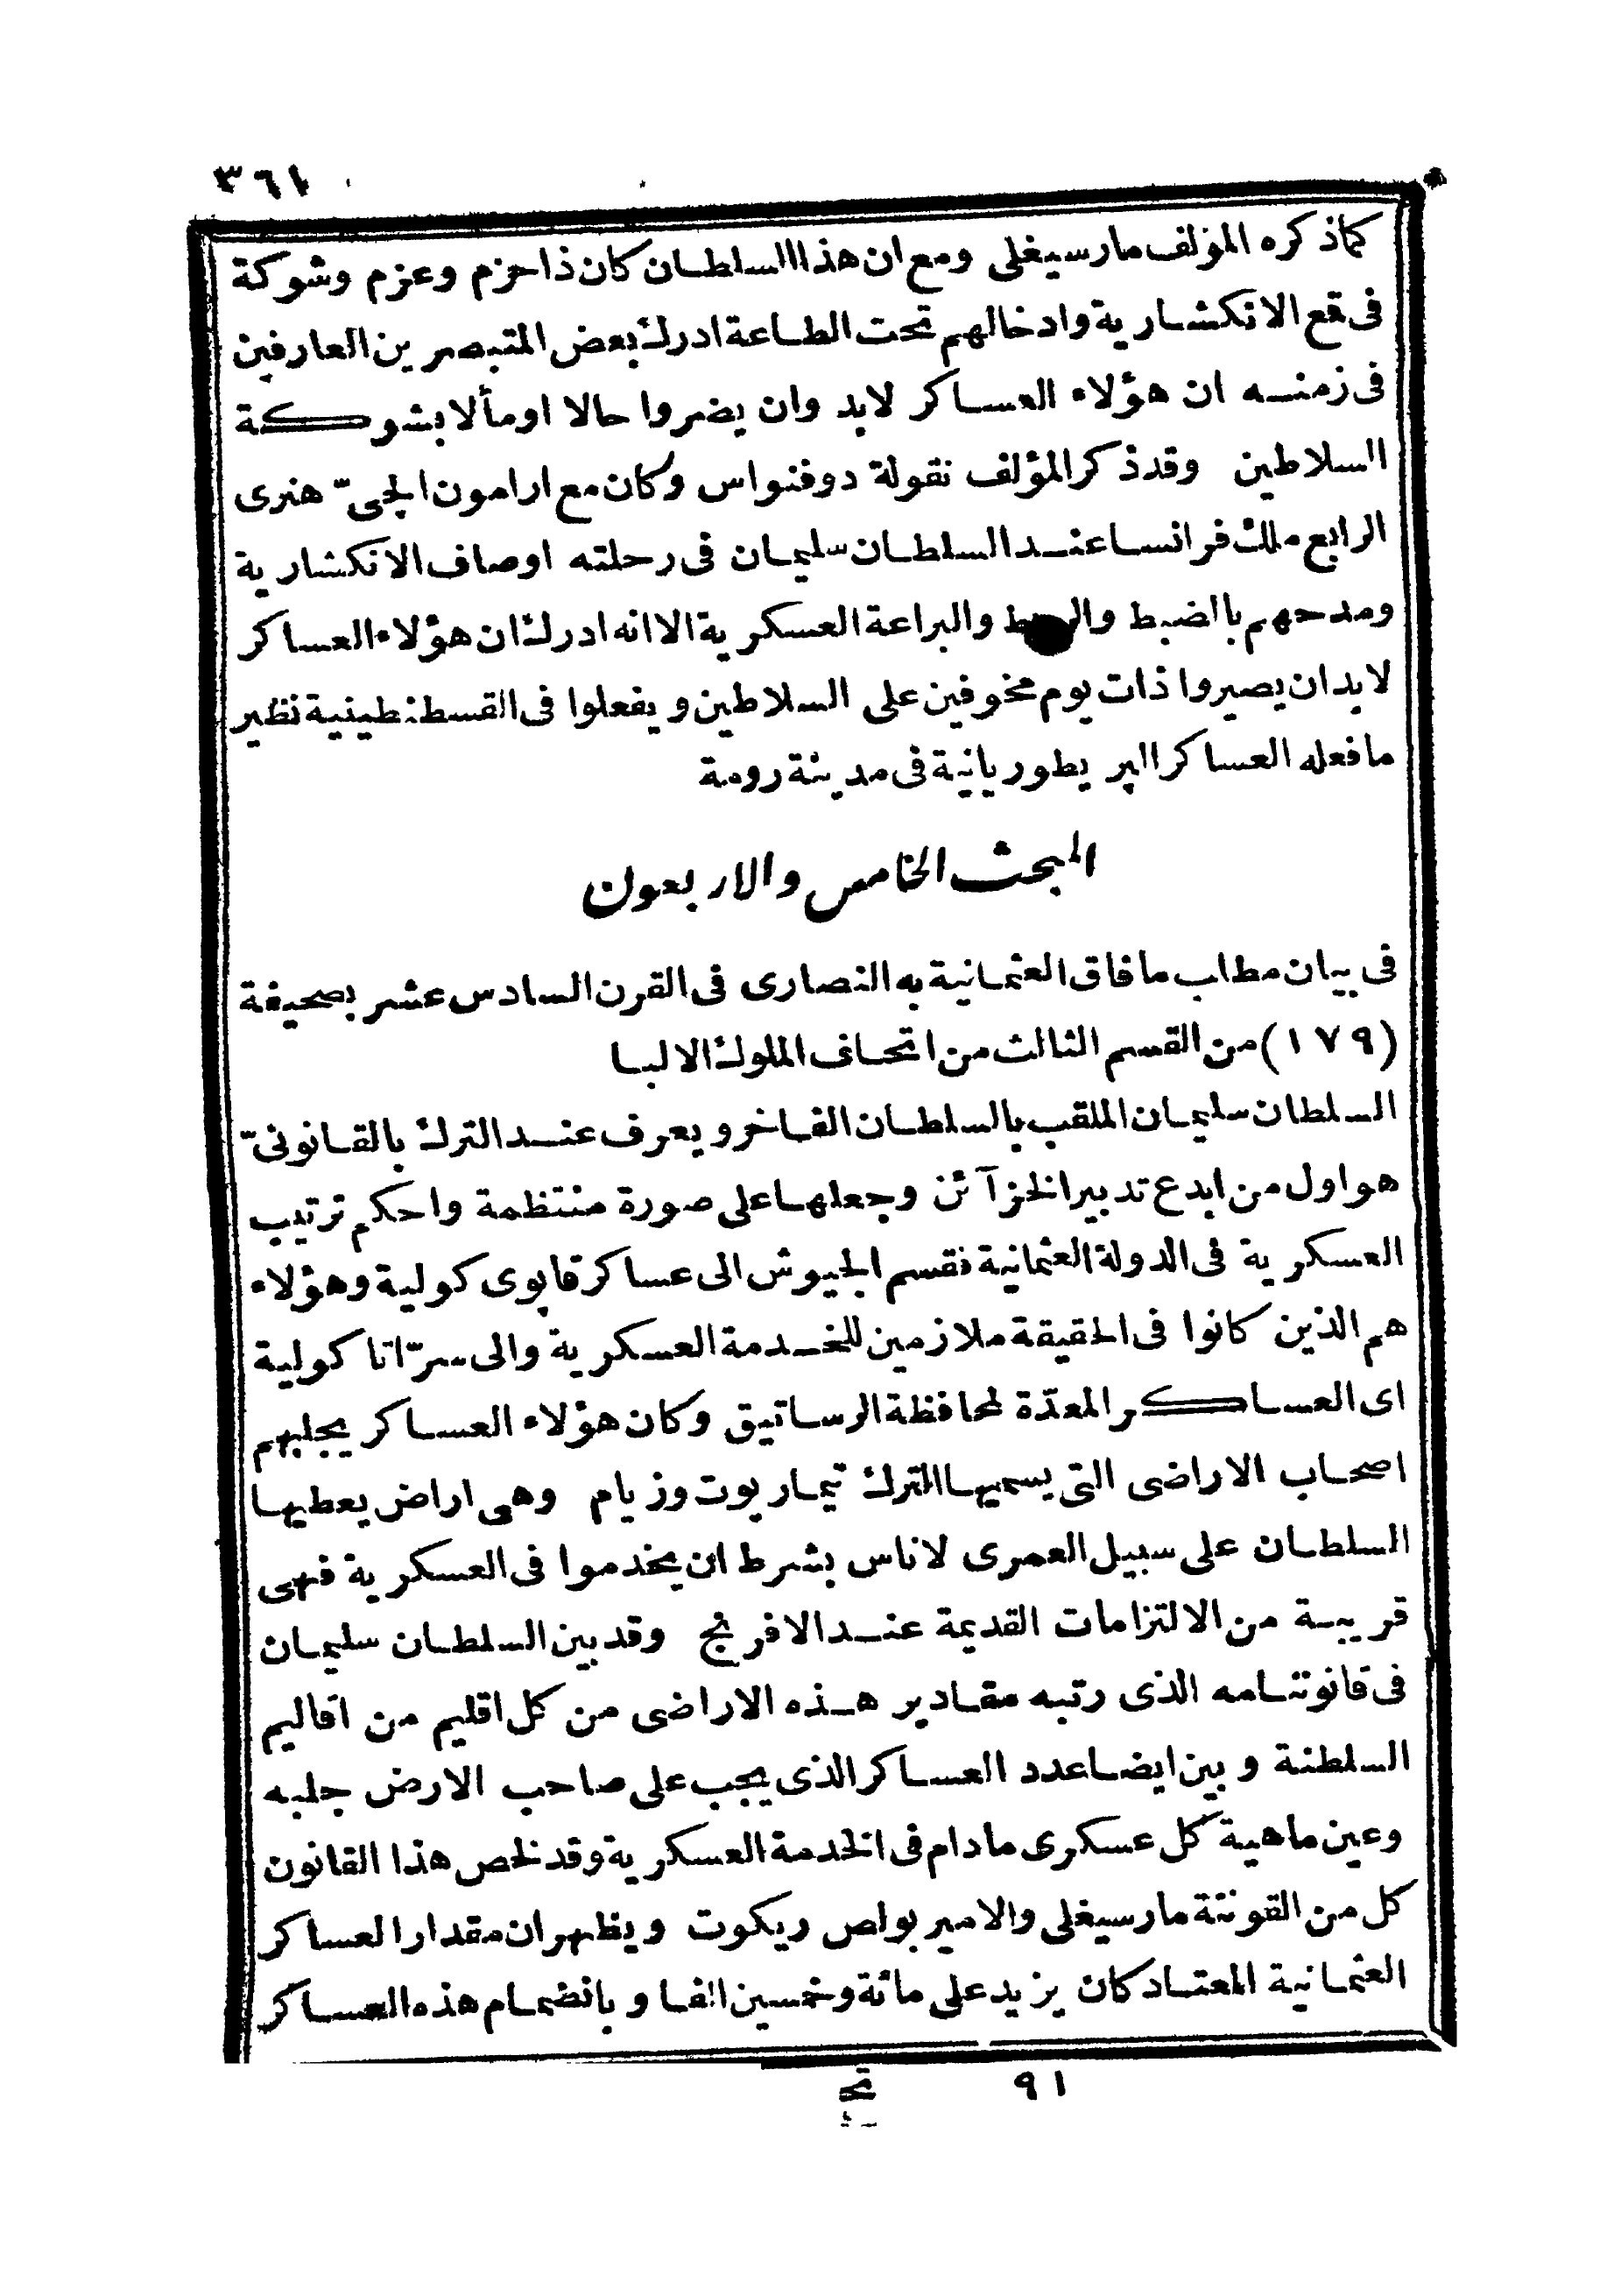 ٣٦١
كماذكره المؤلف مارسيغلى ومع ان هذا السلطان كان ذا حزم وعزم وشوكة
فى قمع الانكشارية وادخالهم تحت الطاعة ادرك بعض المتبصرين العارفين
فى زمنه ان هؤلاء العساكر لابد وان يضروا حالا اومألا بشوكة
السلاطين وقد ذكر المؤلف نقولة دوفنواس وكان مع ارامون ايلچىّ هنرى
الرابع ملك فرانسا عند السلطان سليمان فى رحلته اوصاف الانكشارية
ومدحهم بالضبط والربط والبراعة العسكرية الا انه ادرك ان هؤلاء العساكر
لابد ان يصيروا ذات يوم مخوفين على السلاطين ويفعلوا فى القسطنطينية نظير
مافعله العساكر الپريطوريانية فى مدينة رومة
المبحث الخامس والاربعون
فى بيان مطلب مافاق العثمانية به النصارى فى القرن السادس عشر بصحيفة
(١٧٩) من القسم الثالث من اتحاف الملوك الالبا
السلطان سليمان الملقب بالسلطان الفاخر ويعرف عند الترك بالقانونىّ
هو اول من ابدع تدبير الخزآئن وجعلها على صورة منتظمة واحكم ترتيب
العسكرية فى الدولة العثمانية فقسم الجيوش الى عساكر قاپوى كولية وهؤلاء
هم الذين كانوا فى الحقيقة ملازمين للخدمة العسكرية والى سرّاتا كولية
اى العساكر المعدّة لمحافظة الرساتيق وكان هؤلاء العساكر يجلبهم
اصحاب الاراضى التى يسميها الترك تيماريوت وزيام وهى اراض يعطيها
السلطان على سبيل العمرى لاناس بشرط ان يخدموا فى العسكرية فهى
قريبة من الالتزامات القديمة عند الافرنج وقد بين السلطان سليمان
فى قانوننامه الذى رتبه مقادير هذه الاراضى من كل اقليم من اقاليم
السلطنة وبين ايضا عدد العساكر الذى يجب على صاحب الارض جلبه
وعين ماهية كل عسكرى مادام فى الخدمة العسكرية وقد لخص هذا القانون
كل من القونتة مارسيغلى والامير بولص ريكوت ويظهر ان مقدار العساكر
العثمانية المعتاد كان يزيد على مائة وخمسين الفا وبانضمام هذه العساكر
٩١ تح